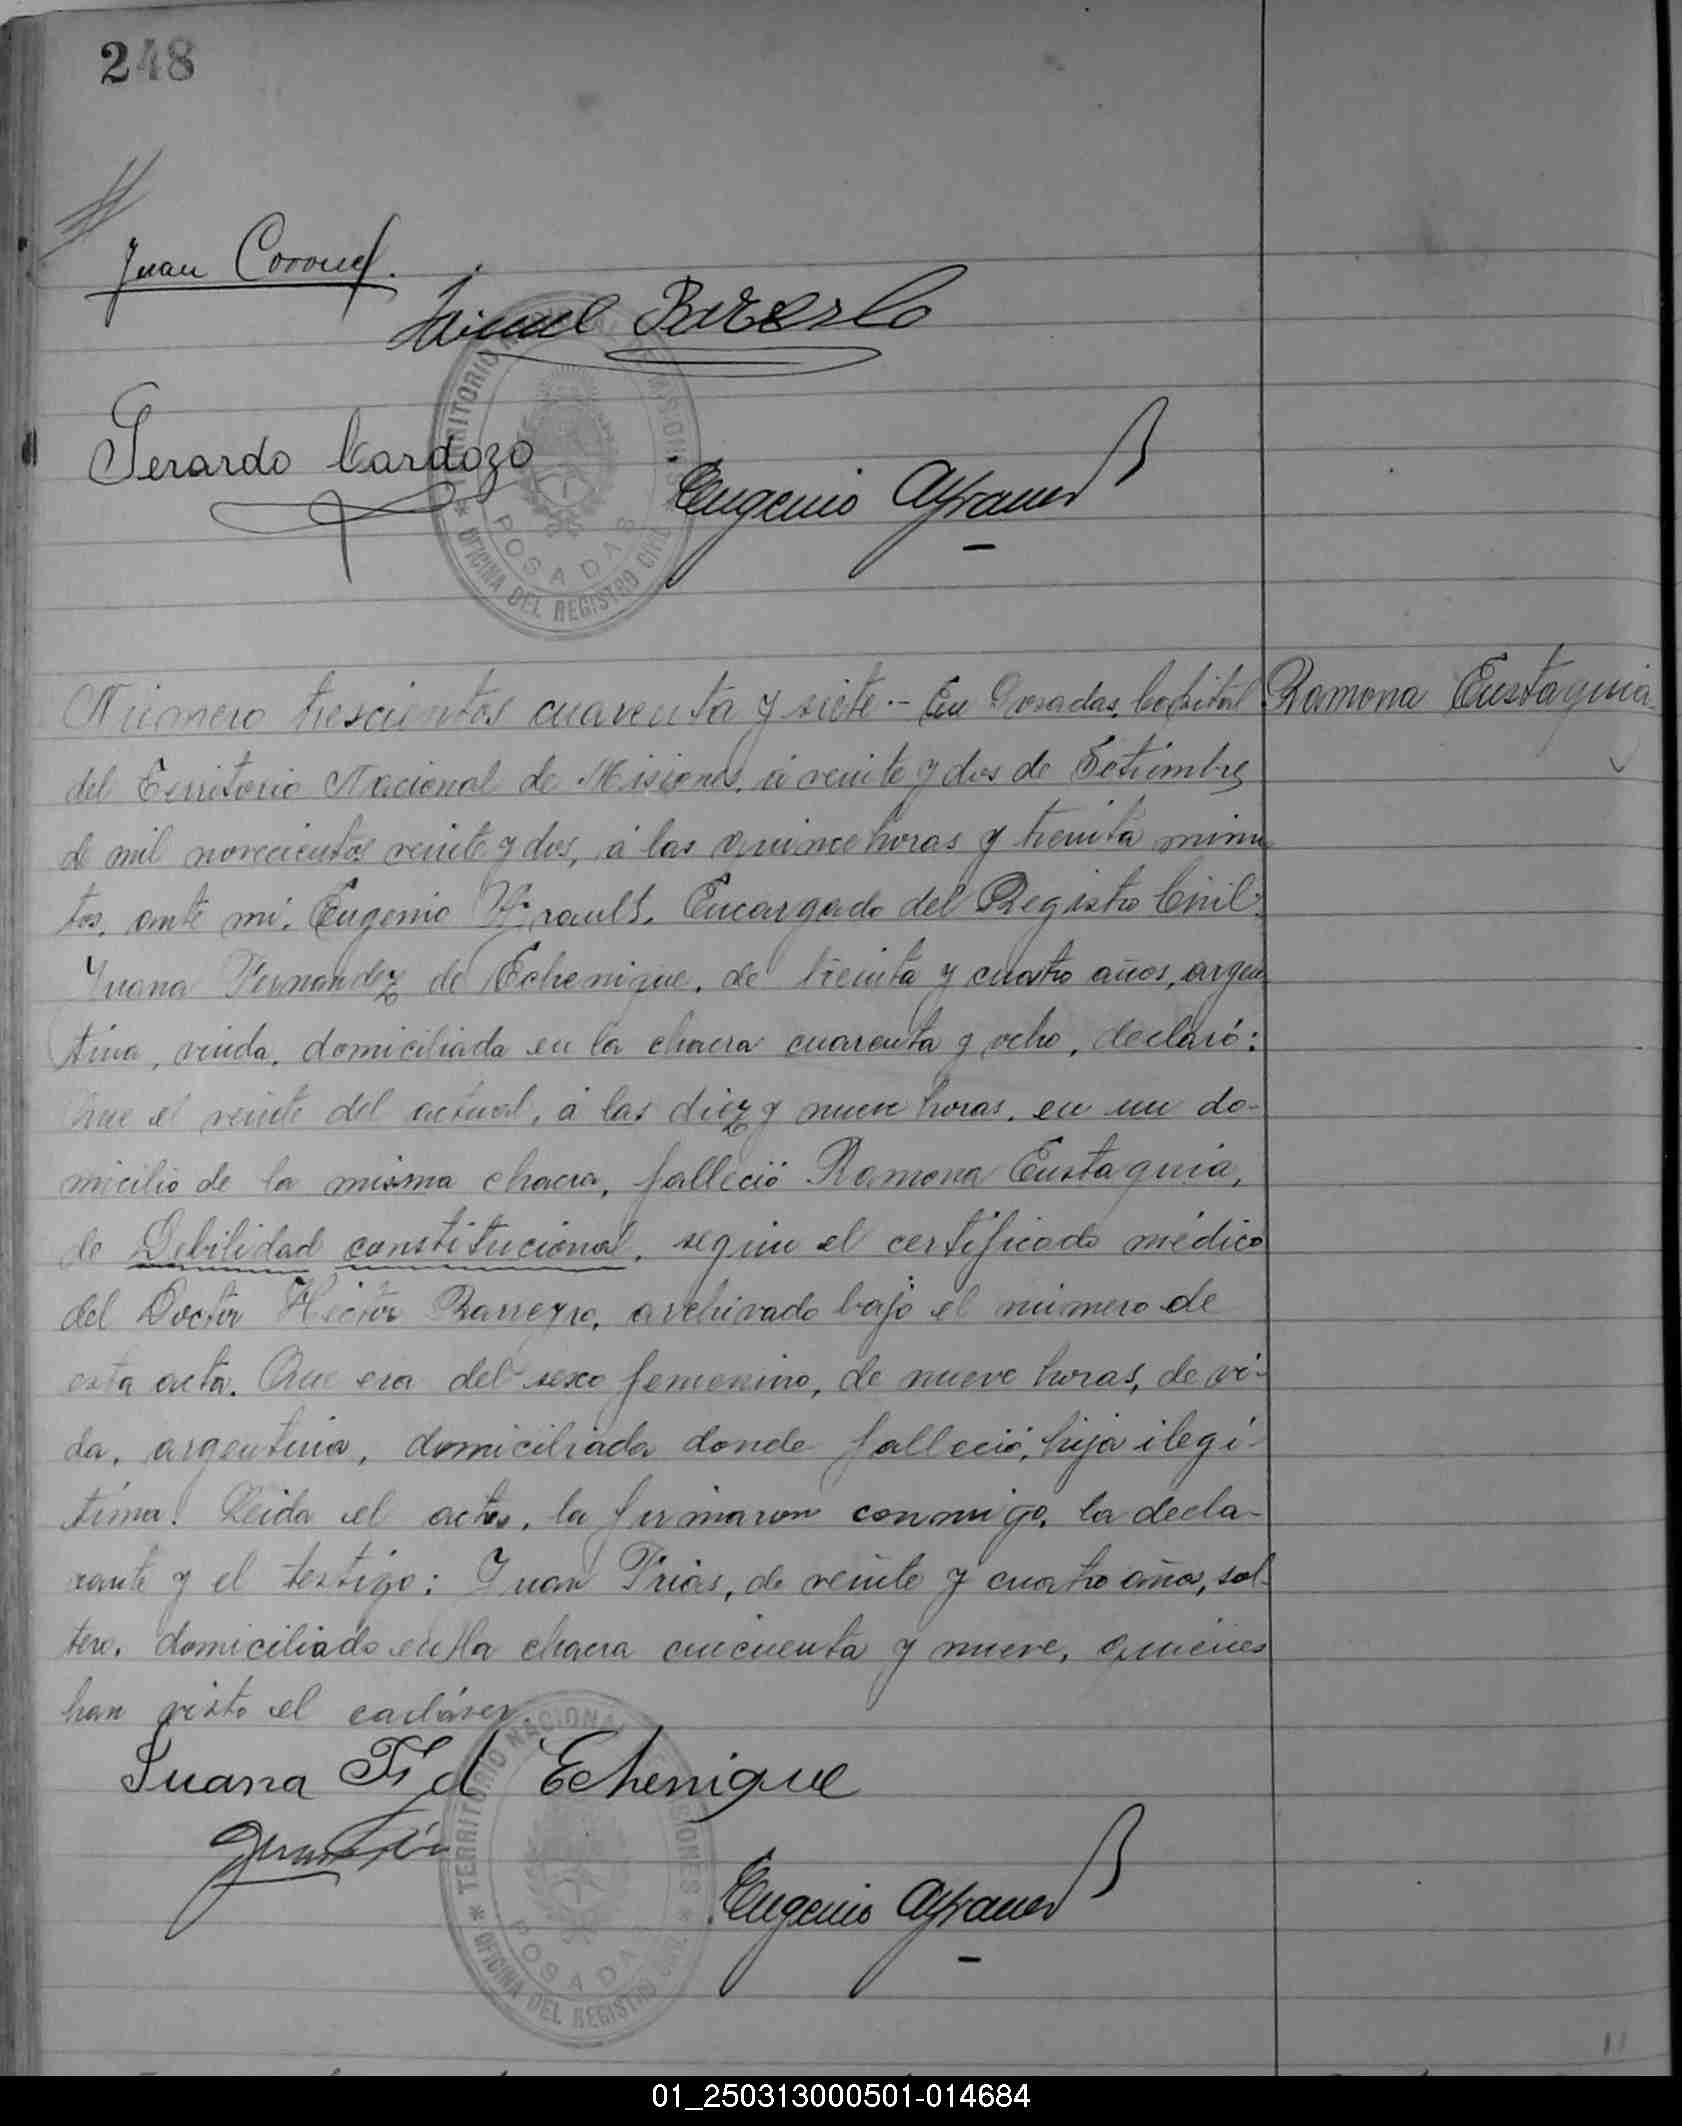 248
Juan Coronel.
Gerardo Cardozo
Eugenio
TERRITORIO NACIONAL DE MISIONES
POSADAS
OFICINA DEL REGISTRO CIVIL
Número trescientos cuarenta y siete.- En Posadas, Capital
Ramona Eustaquia
del Territorio Nacional de Misiones, á veinte y dos de Setiembre
de mil novecientos veinte y dos, á las quince horas y treinta minu
tos, ante mi, Eugenio Encargado del Registro Civil,
Juana Fernandez de Echenique, de treinta y cuatro años, argen
tina, viuda, domiciliada en la chacra cuarenta y ocho, declaró:
Que el veinte del actual, á las diez y nueve horas, en un do-
micilio de la misma chacra, falleció Ramona Eustaquia,
de Debilidad constitucional, segun el certificado médico
del Doctor Héctor Barreyro, archivado bajo el número de
esta acta. Que era del sexo femenino, de nueve horas, de vi-
da, argentina, domiciliada donde falleció, hija ilegí-
tima. Leida el acta, la firmaron conmigo, la decla-
rante y el testigo: Juan Frias, de veinte y cuatro años, sol-
tero, domiciliado en la chacra cincuenta y nueve, quienes
han visto el cadáver.
Juana F. d Echenique
TERRITORIO NACIONAL DE MISIONES
POSADAS
OFICINA DEL REGISTRO CIVIL
Eugenio
01_250313000501-014684